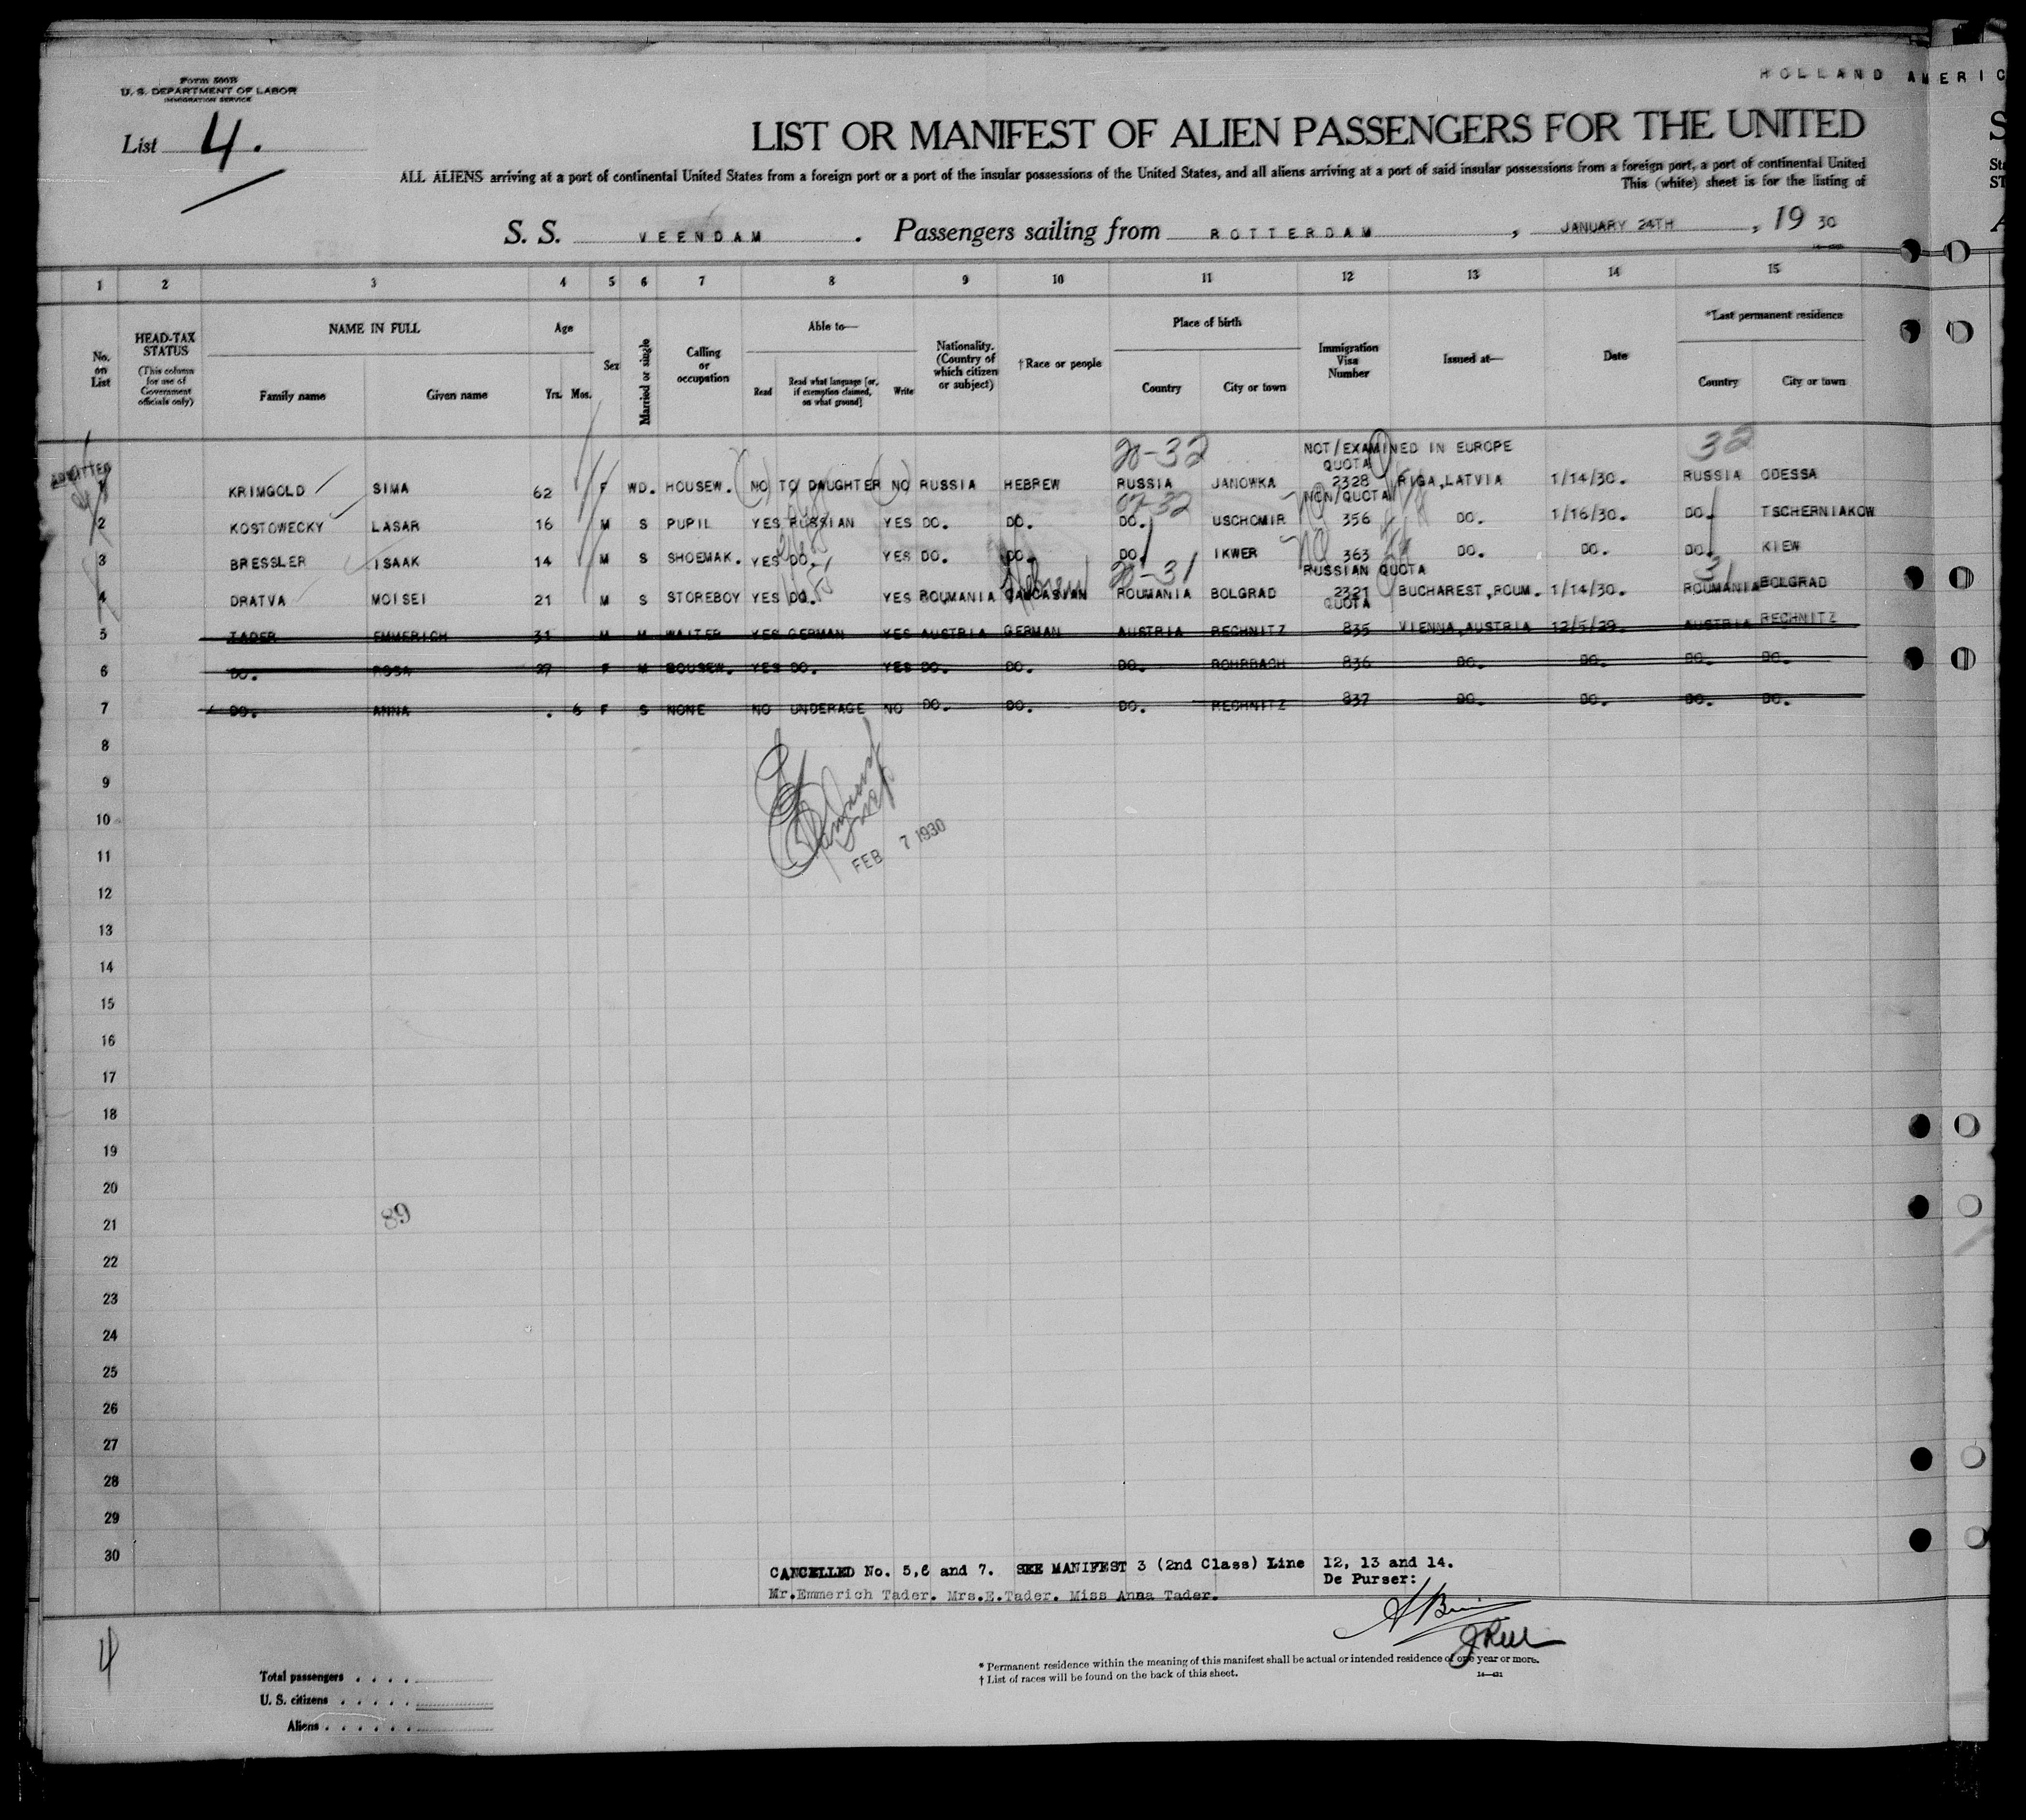 HOLLAND AMERIC
Form 500B
U. S. DEPARTMENT OF LABOR
IMMIGRATION SERVICE
List 4.
LIST OR MANIFEST OF ALIEN PASSENGERS FOR THE UNITED
ALL ALIENS arriving at a port of continental United States from a foreign port or a port of the insular possessions of the United States, and all aliens arriving at a port of said insular possessions from a foreign port, a port of continental United
This (white) sheet is for the listing of
S. S. VEENDAM . Passengers sailing from ROTTERDAM , JANUARY 24TH , 19 30
1 2 3 4 5 6 7 8 9 10 11 12 13 14 15
No. on List
HEAD-TAX STATUS (This column for use of Government officials only)
NAME IN FULL
Family name Given name
Age
Yrs. Mos.
Sex
Married or single
Calling or occupation
Able to—
Read Read what language [or, if exemption claimed, on what ground] Write
Nationality. (Country of which citizen or subject)
†Race or people
Place of birth
Country City or town
Immigration Visa Number
Issued at—
Date
*Last permanent residence
Country City or town
ADMITTED
20-32 NOT/EXAMINED IN EUROPE 32
QUOTA
1 KRIMGOLD SIMA 62 F WD. HOUSEW. NO TO DAUGHTER NO RUSSIA HEBREW RUSSIA JANOWKA 2328 RIGA,LATVIA 1/14/30. RUSSIA ODESSA
07-32 NON/QUOTA
2 KOSTOWECKY LASAR 16 M S PUPIL YES RUSSIAN YES DO. DO. DO. USCHOMIR 356 DO. 1/16/30. DO. TSCHERNIAKOW
3 BRESSLER ISAAK 14 M S SHOEMAK. YES DO. YES DO. DO. DO. IKWER 363 DO. DO. DO. KIEW
Hebrew 20-31 RUSSIAN QUOTA 31
4 DRATVA MOISEI 21 M S STOREBOY YES DO. YES ROUMANIA CAUCASIAN ROUMANIA BOLGRAD 2321 BUCHAREST,ROUM. 1/14/30. ROUMANIA BOLGRAD
QUOTA
5 TADER EMMERICH 31 M M WAITER YES GERMAN YES AUSTRIA GERMAN AUSTRIA RECHNITZ 835 VIENNA,AUSTRIA 12/5/29. AUSTRIA RECHNITZ
6 DO. ROSA 27 F M HOUSEW. YES DO. YES DO. DO. DO. ROHRBACH 836 DO. DO. DO. DO.
7 DO. ANNA . 6 F S NONE NO UNDERAGE NO DO. DO. DO. RECHNITZ 837 DO. DO. DO. DO.
8
9
10
FEB 7 1930
11
12
13
14
15
16
17
18
19
20
21 89
22
23
24
25
26
27
28
29
30
CANCELLED No. 5,6 and 7. SEE MANIFEST 3 (2nd Class) Line 12, 13 and 14.
De Purser:
Mr.Emmerich Tader. Mrs.E.Tader. Miss Anna Tader.
4
* Permanent residence within the meaning of this manifest shall be actual or intended residence of one year or more.
† List of races will be found on the back of this sheet.
Total passengers . . . .
U. S. citizens . . . . .
Aliens . . . . . .